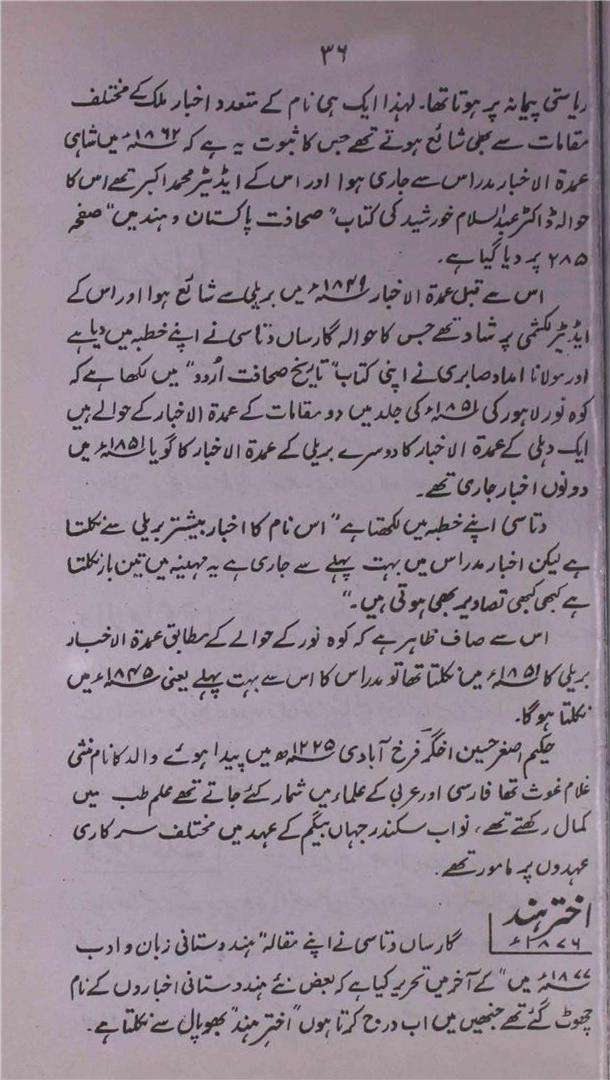 ۳۶
ریاستی پیمانہ پر ہوتا تھا۔ لہٰذا ایک ہی نام کے متعدد اخبار ملک کے مختلف
مقامات سے بھی شائع ہوتے تھے جس کا ثبوت یہ ہے کہ ۱۸۶۲ء میں شاہی
عمدۃ الاخبار مدراس سے جاری ہوا اور اس کے ایڈیٹر محمد اکبر تھے اس کا
حوالہ ڈاکٹر عبدالسلام خورشید کی کتاب "صحافت پاکستان و ہند میں" صفحہ
۲۸۵ پر دیا گیا ہے۔
اس سے قبل عمدۃ الاخبار ۱۸۴۹ء میں بریلی سے شائع ہوا اور اس کے
ایڈیٹر لکشمی پرشاد تھے جس کا حوالہ گارساں دتاسی نے اپنے خطبہ میں دیا ہے
اور مولانا امداد صابری نے اپنی کتاب "تاریخ صحافت اُردو" میں لکھا ہے کہ
کوہ نور لاہور کی ۱۸۵۱ء کی جلد میں دو مقامات کے عمدۃ الاخبار کے حوالے ہیں
ایک دہلی کے عمدۃ الاخبار کا دوسرے بریلی کے عمدۃ الاخبار کا گویا ۱۸۵۱ء میں
دونوں اخبار جاری تھے۔
دتاسی اپنے خطبہ میں لکھتا ہے "اس نام کا اخبار بیشتر بریلی سے نکلتا
ہے لیکن اخبار مدراس میں بہت پہلے سے جاری ہے یہ مہینہ میں تین بار نکلتا
ہے کبھی کبھی تصاویر بھی ہوتی ہیں۔"
اس سے صاف ظاہر ہے کہ کوہ نور کے حوالے کے مطابق عمدۃ الاخبار
بریلی کا ۱۸۵۱ء میں نکلتا تھا تو مدراس کا اس سے بہت پہلے یعنی ۱۸۴۵ء میں
نکلتا ہوگا۔
حکیم اصغر حسین اخگر فرخ آبادی ۱۲۲۵ھ میں پیدا ہوئے والد کا نام منشی
غلام غوث تھا فارسی اور عربی کے علماء میں شمار کئے جاتے تھے علم طب میں
کمال رکھتے تھے، نواب سکندر جہاں بیگم کے عہد میں مختلف سرکاری
عہدوں پر مامور تھے۔
اختر ہند
۱۸۷۶ء
گارساں دتاسی نے اپنے مقالہ "ہندوستانی زبان و ادب
۱۸۷۷ء میں" کے آخر میں تحریر کیا ہے کہ بعض نئے ہندوستانی اخباروں کے نام
چھوٹ گئے تھے جنھیں میں اب درج کرتا ہوں "اختر ہند" بھوپال سے نکلتا ہے۔